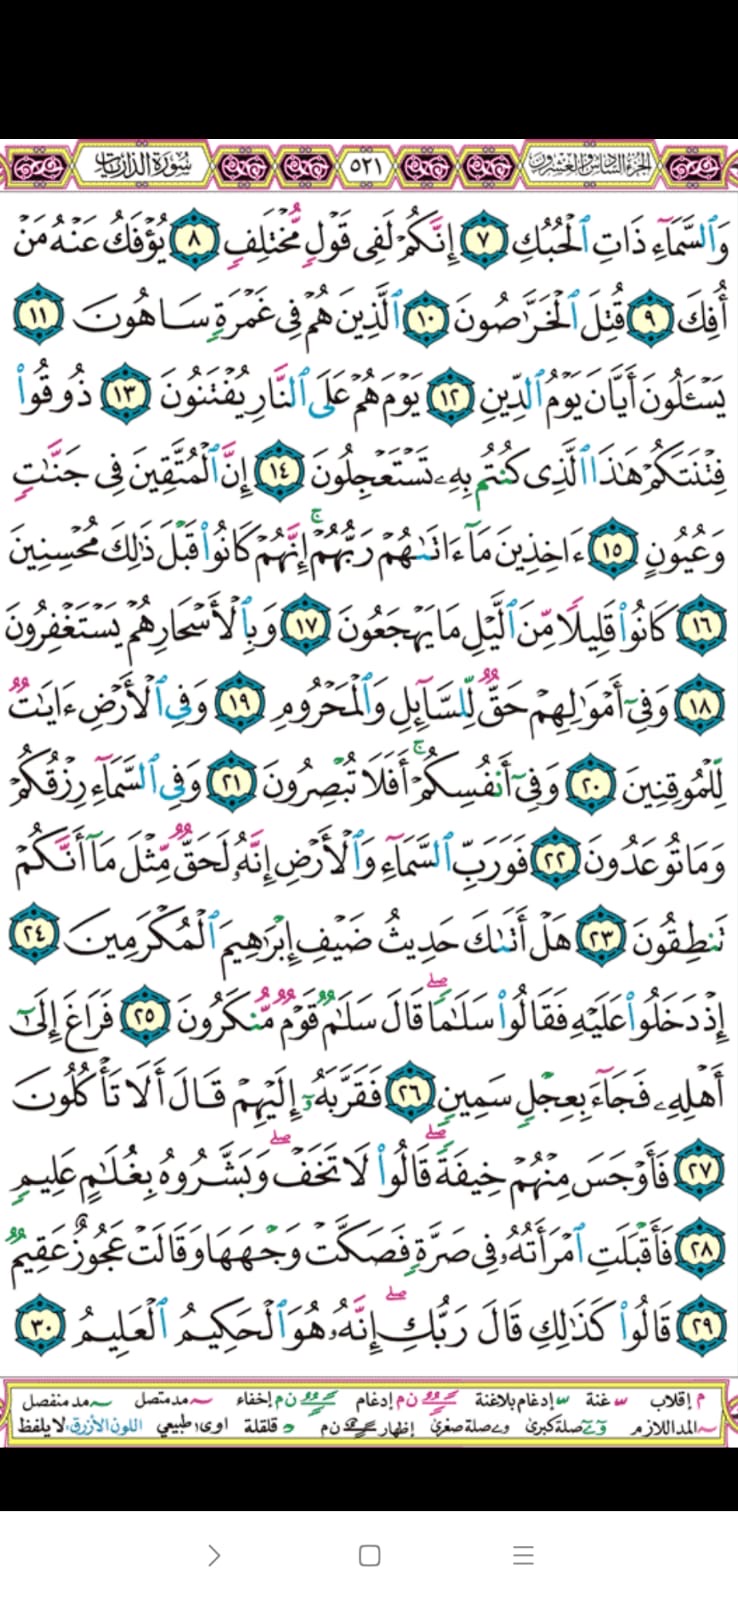 سُورَةُ الذَّارِيَاتِ ٥٢١ الجُزْءُ السَّادِسُ وَالعِشْرُونَ
وَٱلسَّمَآءِ ذَاتِ ٱلْحُبُكِ ٧ إِنَّكُمْ لَفِى قَوْلٍ مُّخْتَلِفٍ ٨ يُؤْفَكُ عَنْهُ مَنْ
أُفِكَ ٩ قُتِلَ ٱلْخَرَّٰصُونَ ١٠ ٱلَّذِينَ هُمْ فِى غَمْرَةٍ سَاهُونَ ١١
يَسْـَٔلُونَ أَيَّانَ يَوْمُ ٱلدِّينِ ١٢ يَوْمَ هُمْ عَلَى ٱلنَّارِ يُفْتَنُونَ ١٣ ذُوقُوا۟
فِتْنَتَكُمْ هَٰذَا ٱلَّذِى كُنتُم بِهِۦ تَسْتَعْجِلُونَ ١٤ إِنَّ ٱلْمُتَّقِينَ فِى جَنَّٰتٍ
وَعُيُونٍ ١٥ ءَاخِذِينَ مَآ ءَاتَىٰهُمْ رَبُّهُمْ ۚ إِنَّهُمْ كَانُوا۟ قَبْلَ ذَٰلِكَ مُحْسِنِينَ
١٦ كَانُوا۟ قَلِيلًا مِّنَ ٱلَّيْلِ مَا يَهْجَعُونَ ١٧ وَبِٱلْأَسْحَارِ هُمْ يَسْتَغْفِرُونَ
١٨ وَفِىٓ أَمْوَٰلِهِمْ حَقٌّ لِّلسَّآئِلِ وَٱلْمَحْرُومِ ١٩ وَفِى ٱلْأَرْضِ ءَايَٰتٌ
لِّلْمُوقِنِينَ ٢٠ وَفِىٓ أَنفُسِكُمْ ۚ أَفَلَا تُبْصِرُونَ ٢١ وَفِى ٱلسَّمَآءِ رِزْقُكُمْ
وَمَا تُوعَدُونَ ٢٢ فَوَرَبِّ ٱلسَّمَآءِ وَٱلْأَرْضِ إِنَّهُۥ لَحَقٌّ مِّثْلَ مَآ أَنَّكُمْ
تَنطِقُونَ ٢٣ هَلْ أَتَىٰكَ حَدِيثُ ضَيْفِ إِبْرَٰهِيمَ ٱلْمُكْرَمِينَ ٢٤
إِذْ دَخَلُوا۟ عَلَيْهِ فَقَالُوا۟ سَلَٰمًا ۖ قَالَ سَلَٰمٌ قَوْمٌ مُّنكَرُونَ ٢٥ فَرَاغَ إِلَىٰٓ
أَهْلِهِۦ فَجَآءَ بِعِجْلٍ سَمِينٍ ٢٦ فَقَرَّبَهُۥٓ إِلَيْهِمْ قَالَ أَلَا تَأْكُلُونَ
٢٧ فَأَوْجَسَ مِنْهُمْ خِيفَةً ۖ قَالُوا۟ لَا تَخَفْ ۖ وَبَشَّرُوهُ بِغُلَٰمٍ عَلِيمٍ
٢٨ فَأَقْبَلَتِ ٱمْرَأَتُهُۥ فِى صَرَّةٍ فَصَكَّتْ وَجْهَهَا وَقَالَتْ عَجُوزٌ عَقِيمٌ
٢٩ قَالُوا۟ كَذَٰلِكِ قَالَ رَبُّكِ ۖ إِنَّهُۥ هُوَ ٱلْحَكِيمُ ٱلْعَلِيمُ ٣٠
م إقلاب غنة إدغام بلاغنة ن م إدغام ن م إخفاء مد متصل مد منفصل
المد اللازم صلة كبرى صلة صغرى إظهار ن م قلقلة اوى طبيعي اللون الأزرق: لا يلفظ